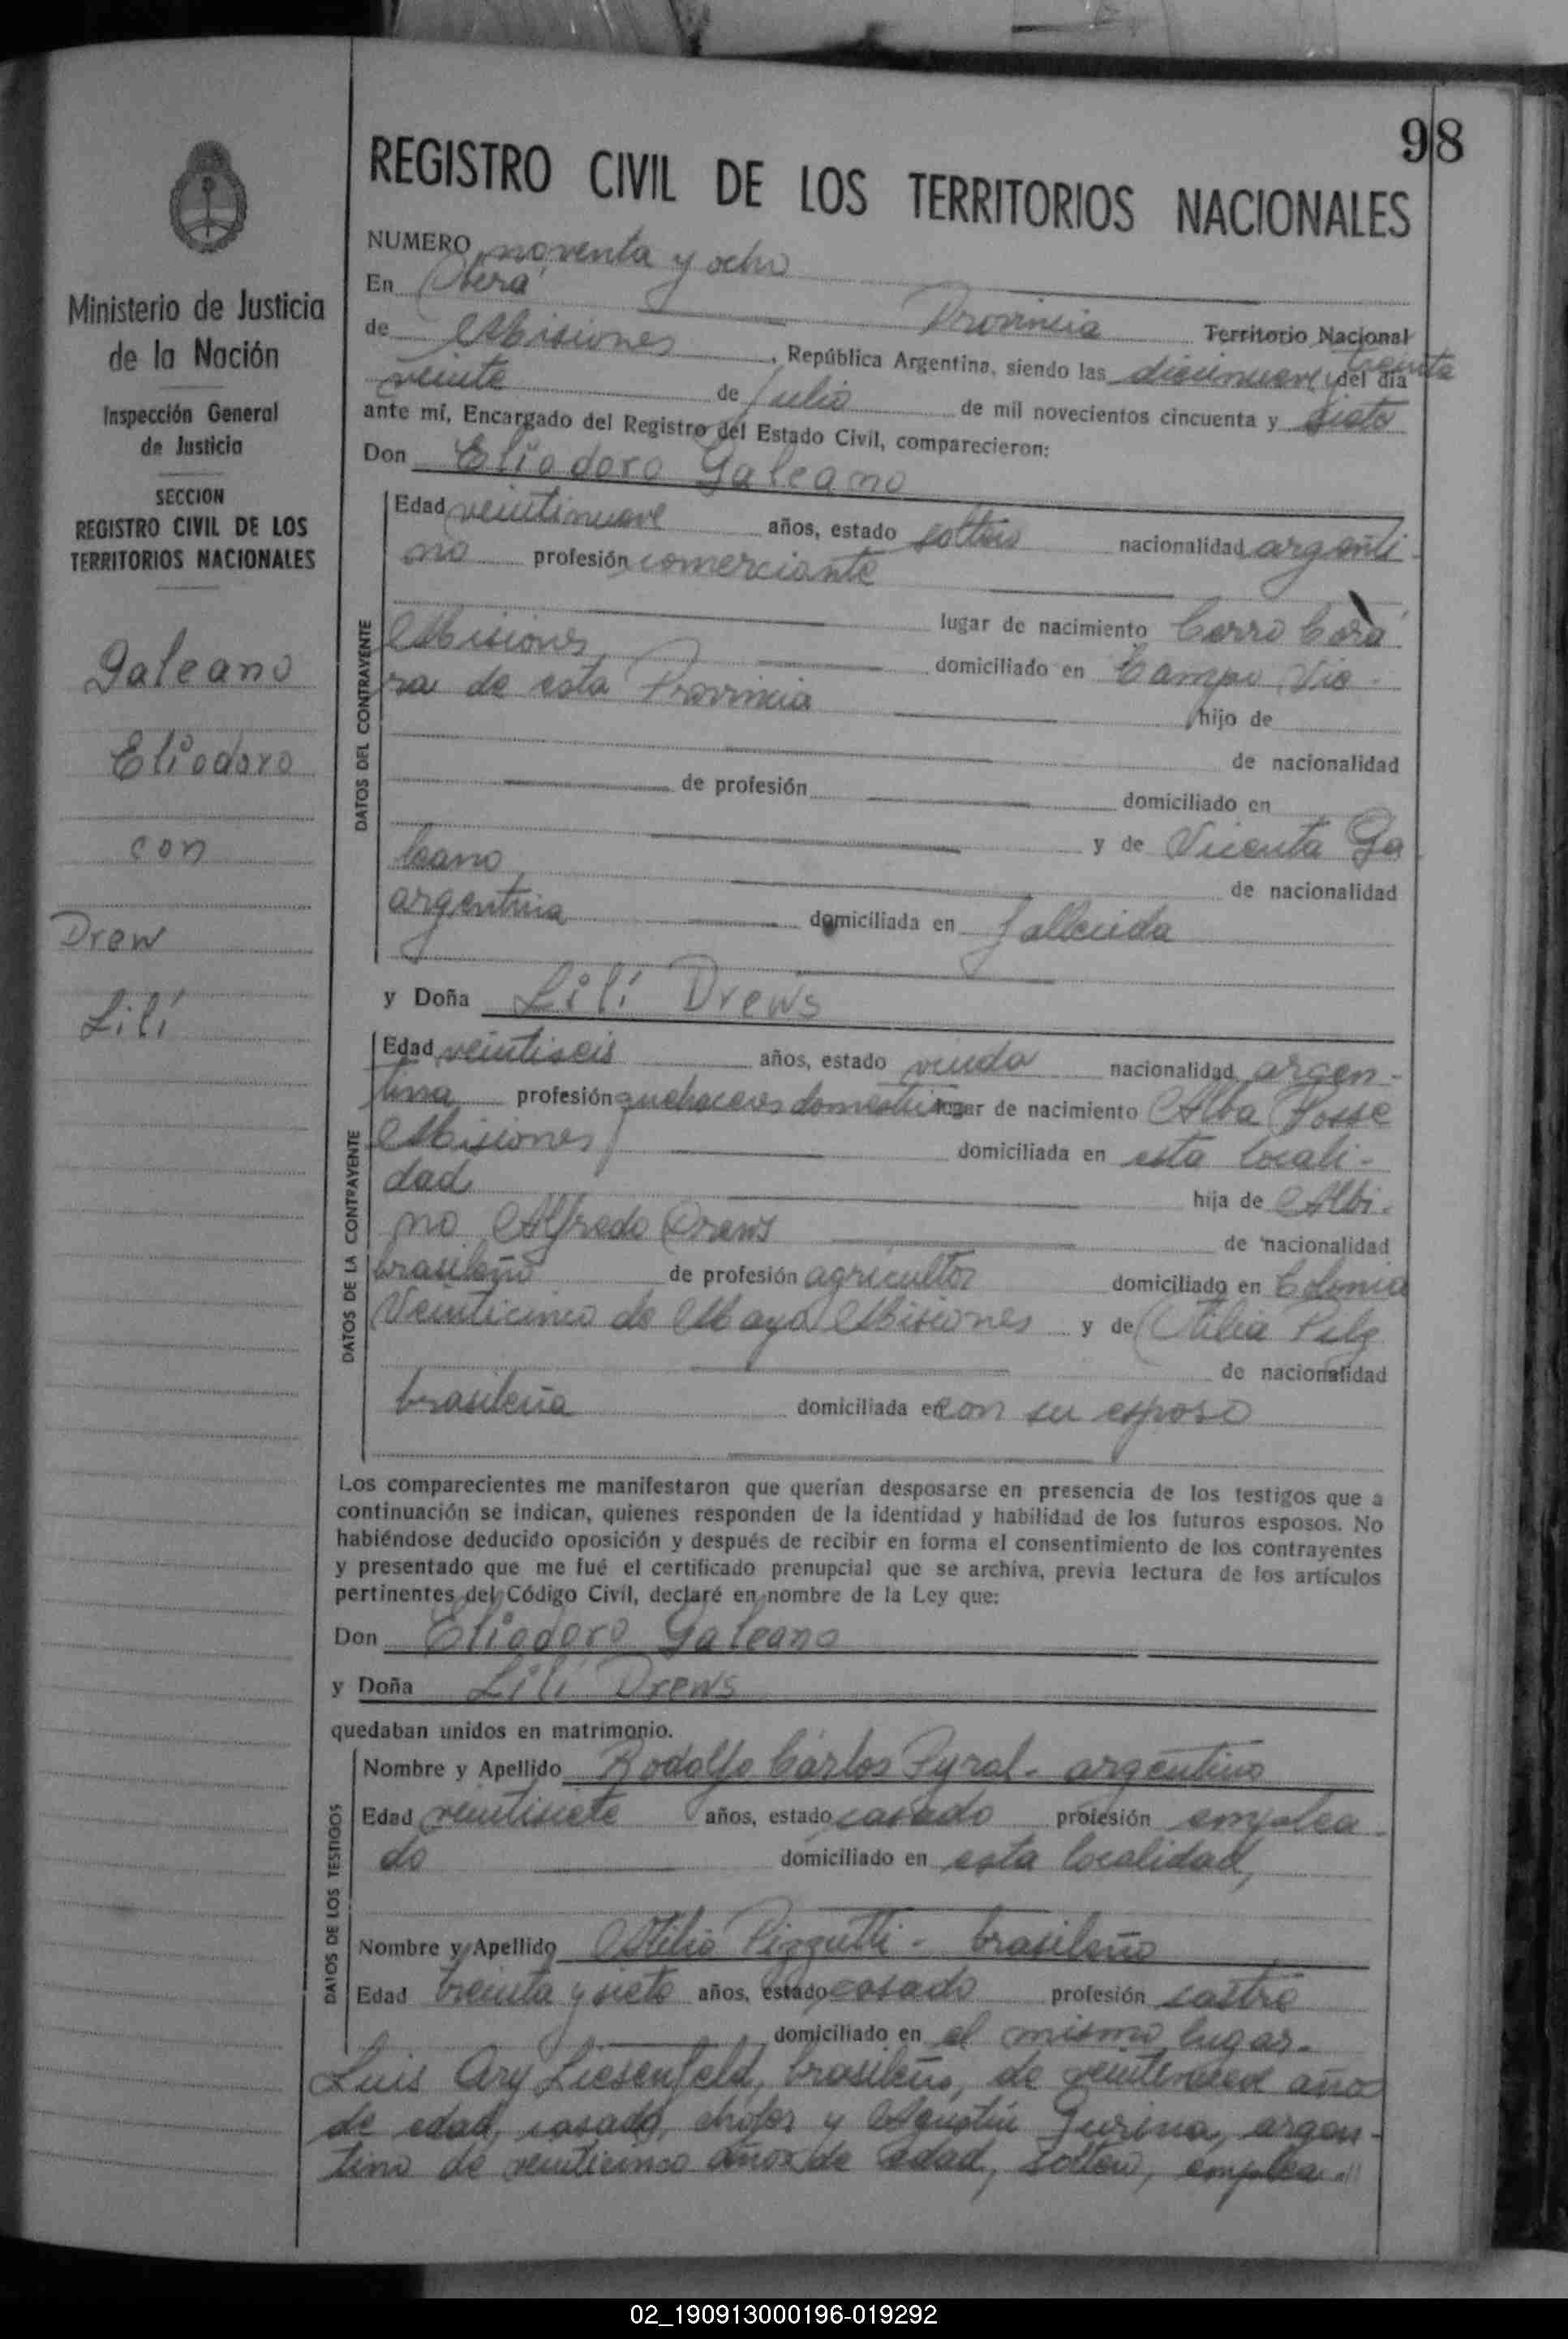 98
REGISTRO CIVIL DE LOS TERRITORIOS NACIONALES
NUMERO noventa y ocho
En Oberá
Provincia Territorio Nacional
de Misiones, República Argentina, siendo las diecinueve y treinta del día
veinte de Julio de mil novecientos cincuenta y siete
ante mí, Encargado del Registro del Estado Civil, comparecieron:
Don Eliodoro Galeano
DATOS DEL CONTRAYENTE
Edad veintinueve años, estado soltero nacionalidad argenti-
no profesión comerciante
lugar de nacimiento Cerro Corá
Misiones domiciliado en Campo Vie-
ra de esta Provincia hijo de
de nacionalidad
de profesión domiciliado en
y de Vicenta Ga
leano de nacionalidad
argentina domiciliada en fallecida
y Doña Lilí Drews
DATOS DE LA CONTRAYENTE
Edad veintiseis años, estado viuda nacionalidad argen-
tina profesión quehaceres domesticos lugar de nacimiento Alba Posse
Misiones domiciliada en esta locali-
dad hija de Albi-
no Alfredo Drews de nacionalidad
brasileño de profesión agricultor domiciliado en Colonia
Veinticinco de Mayo Misiones y de Otilia Pilz
de nacionalidad
brasileña domiciliada en con su esposo
Los comparecientes me manifestaron que querían desposarse en presencia de los testigos que a
continuación se indican, quienes responden de la identidad y habilidad de los futuros esposos. No
habiéndose deducido oposición y después de recibir en forma el consentimiento de los contrayentes
y presentado que me fué el certificado prenupcial que se archiva, previa lectura de los artículos
pertinentes del Código Civil, declaré en nombre de la Ley que:
Don Eliodoro Galeano
y Doña Lilí Drews
quedaban unidos en matrimonio.
DATOS DE LOS TESTIGOS
Nombre y Apellido Rodolfo Cárlos Pyral - argentino
Edad veintisiete años, estado casado profesión emplea-
do domiciliado en esta localidad,
Nombre y Apellido Atilio Pizzutti - brasileño
Edad treinta y siete años, estado casado profesión sastre
domiciliado en el mismo lugar.
Luis Ary Liesenfeld, brasileño, de años
de edad, casado, chofer y Agustin argen-
tino de veinticinco años de edad, soltero, emplea-
Ministerio de Justicia
de la Nación
Inspección General
de Justicia
SECCION
REGISTRO CIVIL DE LOS
TERRITORIOS NACIONALES
Galeano
Eliodoro
con
Drew
Lilí
02_190913000196-019292